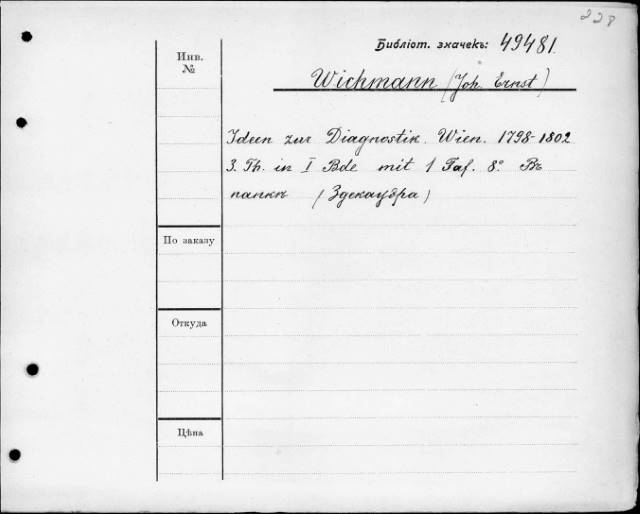 228
Библіот. значекъ: 49481
Инв.
№
Wichmann (Joh. Ernst)
Ideen zur Diagnostik. Wien. 1798-1802
3. Th. in I Bde mit 1 Taf. 8° Въ
папкѣ (Здекаубра)
По заказу
Откуда
Цѣна